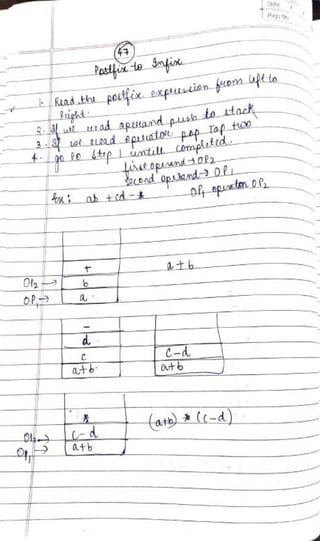 Date
Page No
47
Postfix to Infix
1. Read the postfix expression from left to
Right.
2. If we read operand push to stack
3. If we read operator pop Top two
4. go to Step 1 untill completed.
first operand → OP2
second operand → OP1
Ex: ab +cd-*
OP1 operator OP2
+
OP2 → b
OP1 → a
a+b
-
d
c
a+b
c-d
a+b
*
OP2 → c-d
OP1 → a+b
(a+b) * (c-d)